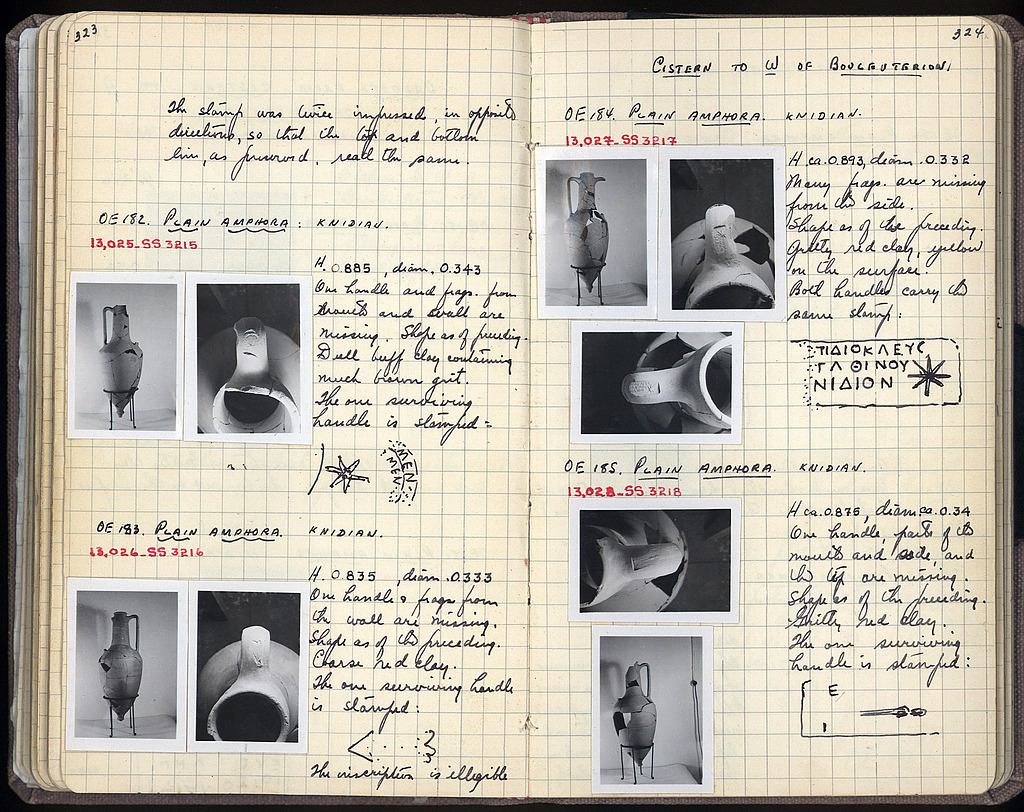 323
The stamp was twice impressed, in opposite
directions, so that the top and bottom
line, as preserved, read the same.
OE 182. PLAIN AMPHORA: KNIDIAN.
13,025-SS 3215
H. 0.885, diam. 0.343
One handle and frags. from
mouth and wall are
missing. Shape as of preceding.
Dull buff clay containing
much brown grit.
The one surviving
handle is stamped:
MEN
MEN
OE 183. PLAIN AMPHORA. KNIDIAN.
13,026-SS 3216
H. 0.835, diam. 0.333
One handle & frags from
the wall are missing.
Shape as of the preceding.
Coarse red clay.
The one surviving handle
is stamped:
The inscription is illegible
324
CISTERN TO W OF BOULEUTERION,
OE 184. PLAIN AMPHORA. KNIDIAN.
13,027-SS 3217
H. ca. 0.893, diam. 0.332
Many frags. are missing
from the side.
Shape as of the preceding.
Gritty red clay, yellow
on the surface.
Both handles carry the
same stamp:
ΠΙΔΙΟΚΛΕΥϹ
ΓΑΘΙΝΟΥ
ΝΙΔΙΟΝ
OE 185. PLAIN AMPHORA. KNIDIAN.
13,028-SS 3218
H ca. 0.875, diam ca. 0.34
One handle, parts of the
mouth and side, and
the tip are missing.
Shape as of the preceding.
Gritty red clay.
The one surviving
handle is stamped:
E
I